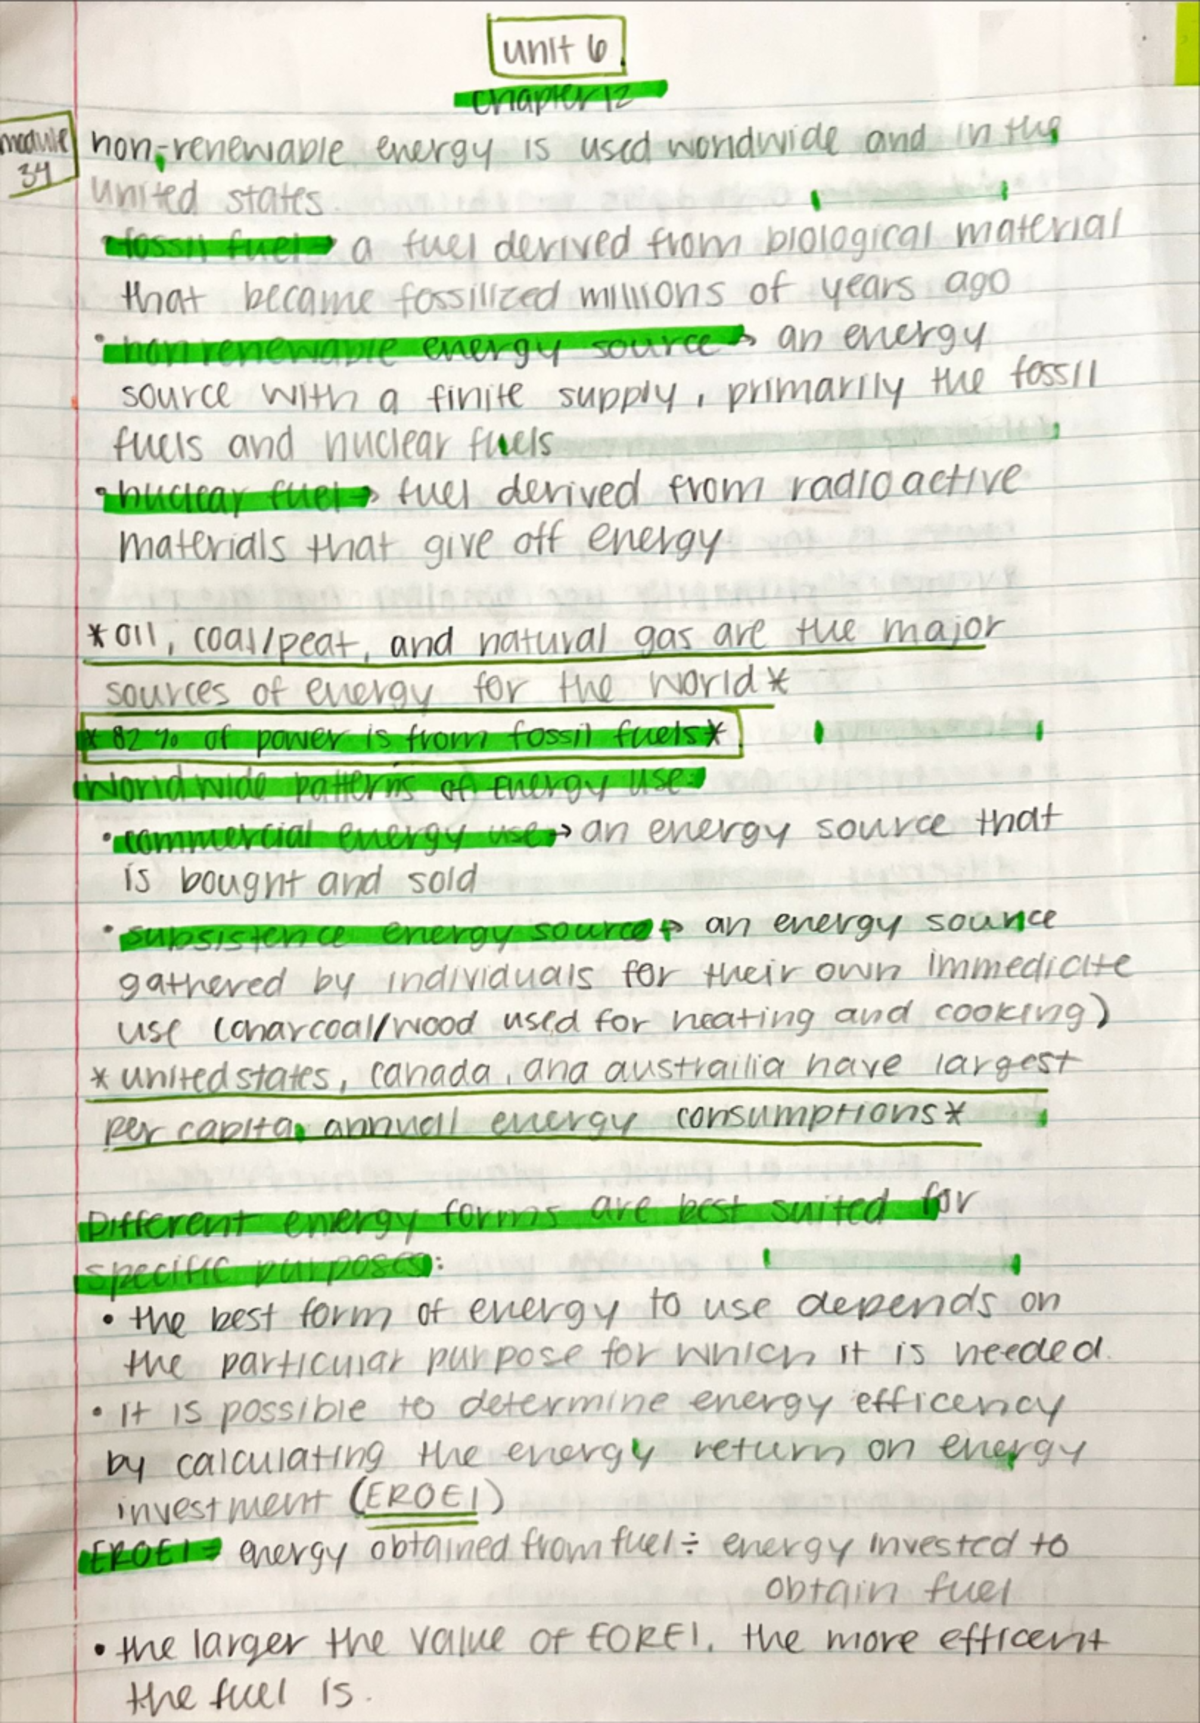 unit 6
chapter 12
module
34
non-renewable energy is used worldwide and in the
united states.
fossil fuel → a fuel derived from biological material
that became fossilized millions of years ago
• nonrenewable energy source → an energy
source with a finite supply, primarily the fossil
fuels and nuclear fuels
• nuclear fuel → fuel derived from radioactive
materials that give off energy
*oil, coal/peat, and natural gas are the major
sources of energy for the world*
* 82% of power is from fossil fuels*
worldwide patterns of energy use:
• commercial energy use → an energy source that
is bought and sold
• subsistence energy source → an energy source
gathered by individuals for their own immediate
use (charcoal/wood used for heating and cooking)
* united states, canada, and austrailia have largest
per capita annual energy consumptions*
Different energy forms are best suited for
specific purposes:
• the best form of energy to use depends on
the particular purpose for which it is needed.
• It is possible to determine energy efficency
by calculating the energy return on energy
investment (EROEI)
EROEI = energy obtained from fuel ÷ energy invested to
obtain fuel
• the larger the value of EOREI, the more efficent
the fuel is.